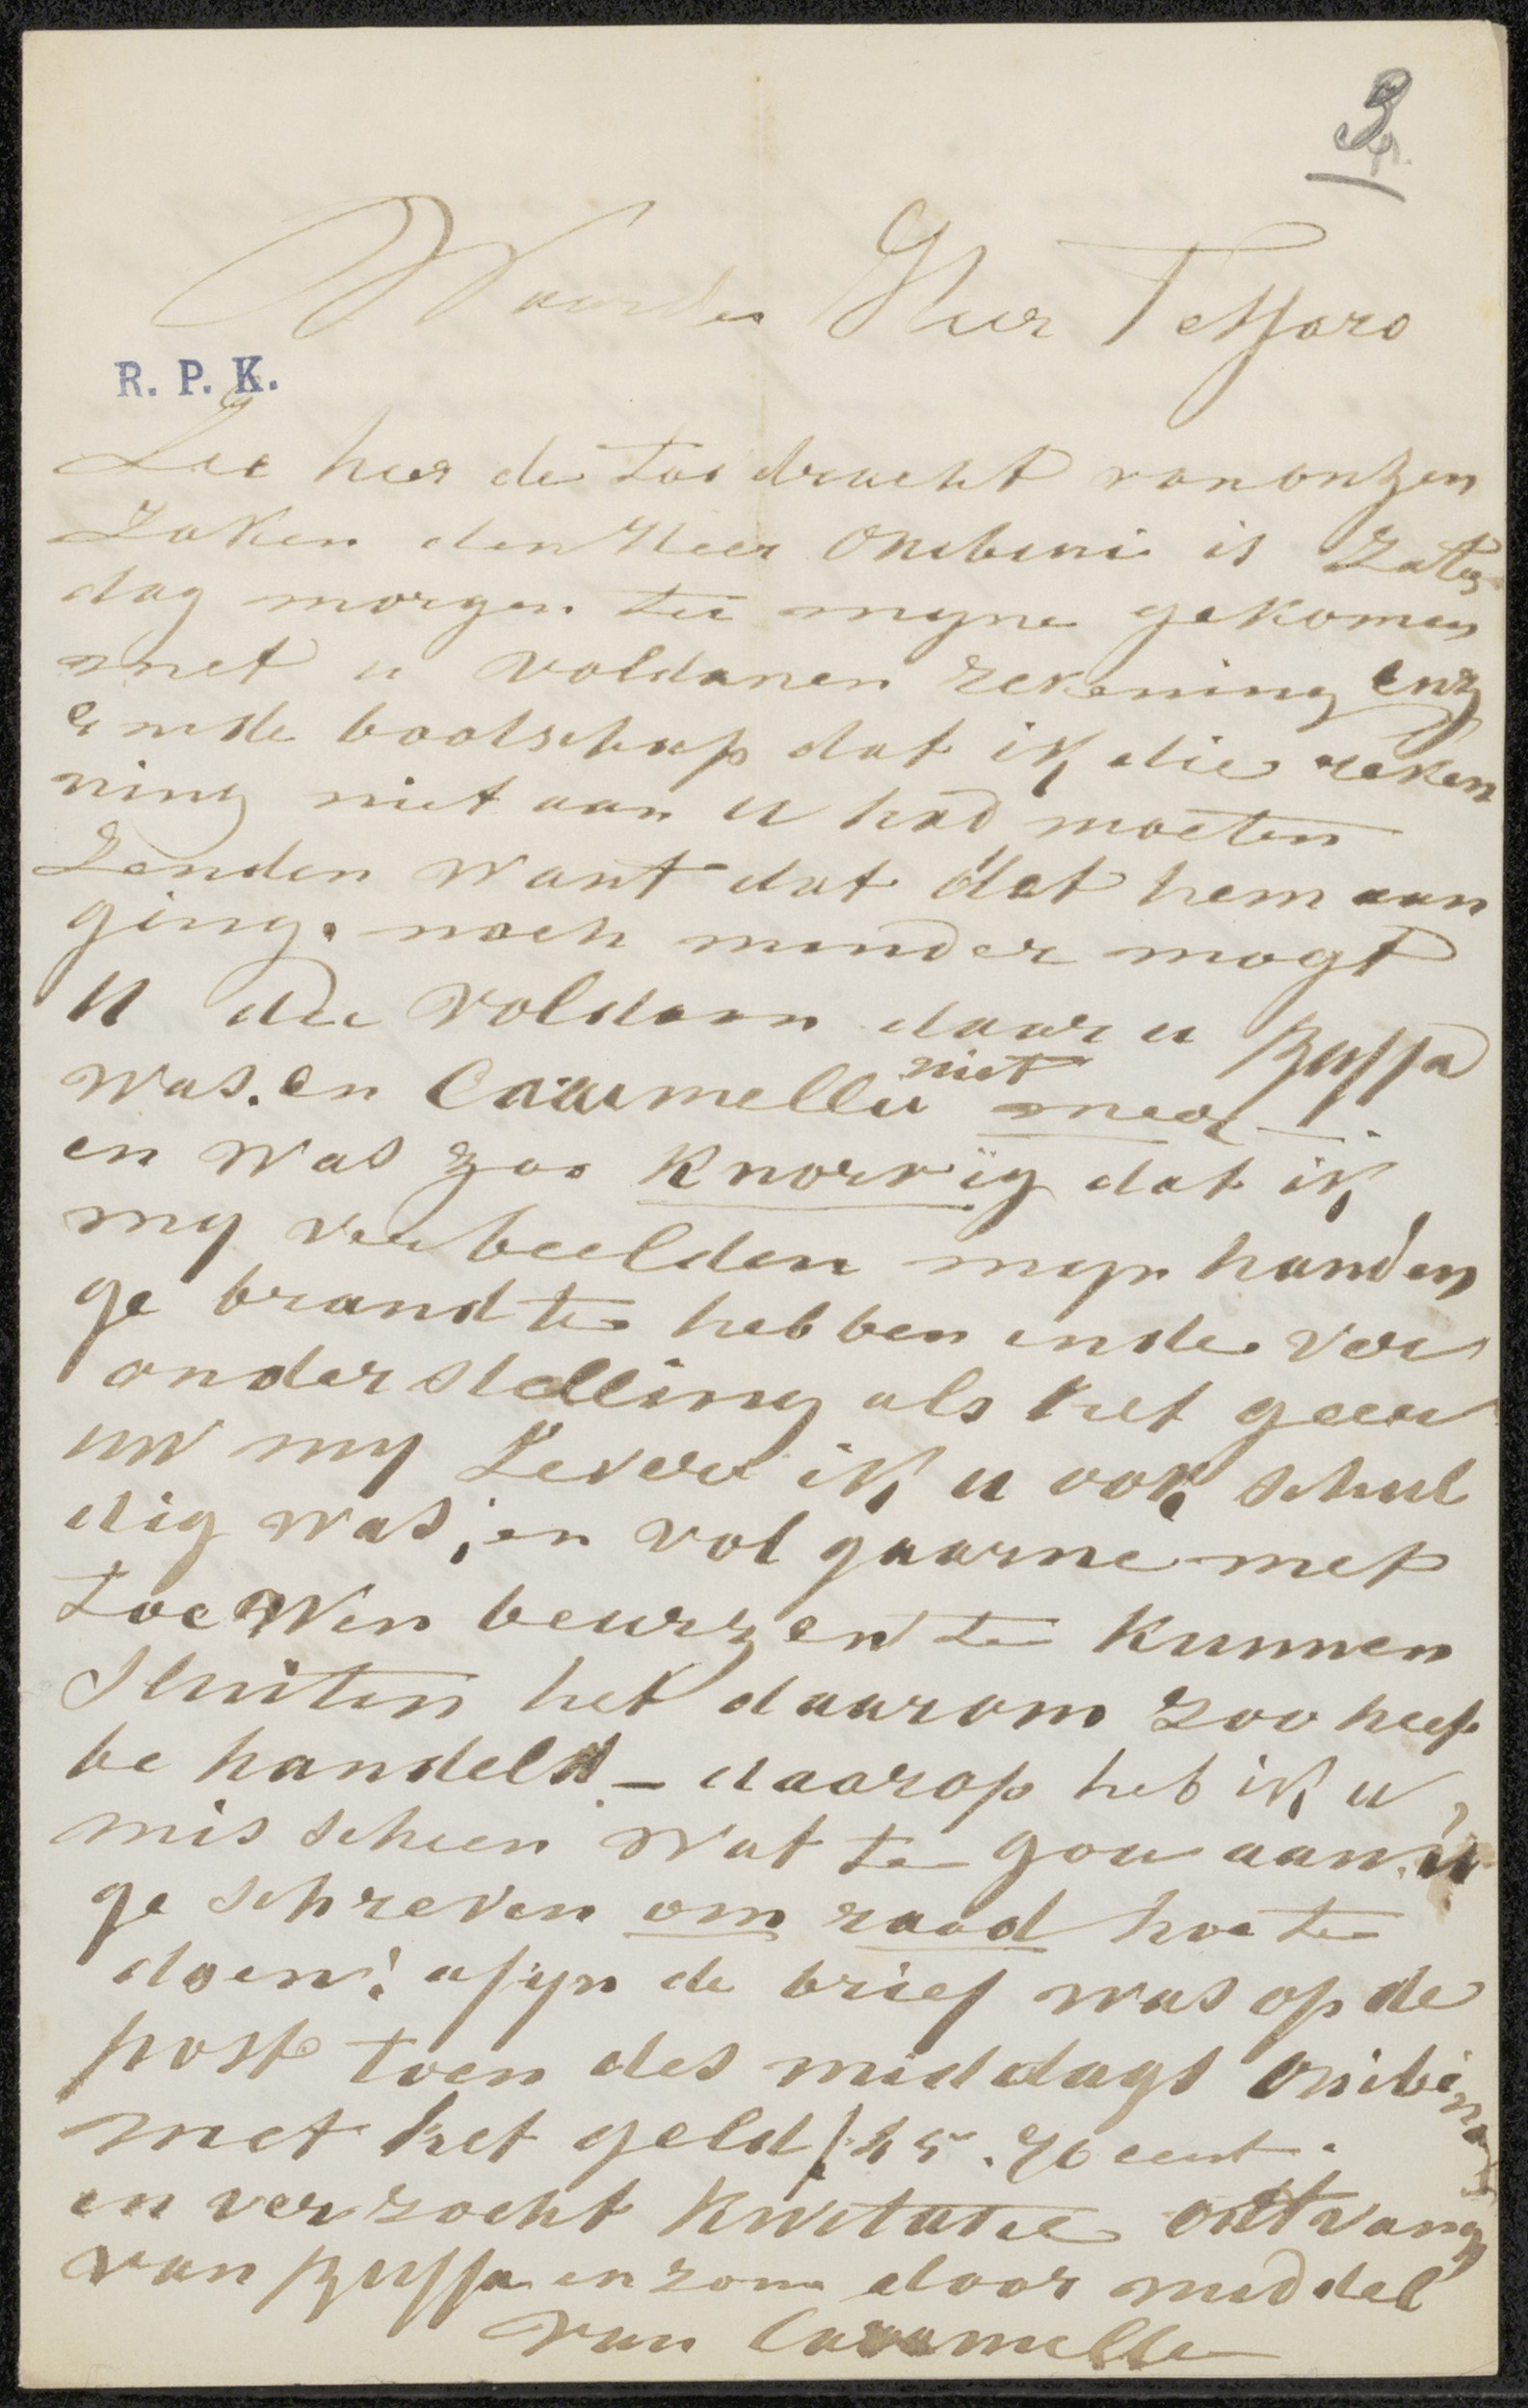 3
Waarde Heer Tessaro
R. P. K.
Zie hier de toedracht van onzen
Zaken den Heer Onibuni is Zater
dag morgen te myne gekomen
met u voldanen rekening enz
en de boodschap dat ik die reken
ning niet aan u had moeten
Zenden want dat dat hem aan
ging. noch minder mogt
U die voldaan daar u Buffa
was. en Caramellie niet meer
en was zoo knorrig dat ik
my verbeelden myn handen
ge brand te hebben in de ver
onderstelling als het geen
uw my Lever ik u ook schul
dig was, en vol gaarne met
toe en beurzen te kunnen
Sluiten het daarom zoo heef
be handeld – daarop heb ik u
mis schien wat te gou aan u
ge schreven om raad hoe te
doen! afyn de brief was op de
post toen des middags Onibini
met het geld f 45.70 cent.
en verzocht kwitatie ontvang
van Buffa en zom door middel
van Caramelle